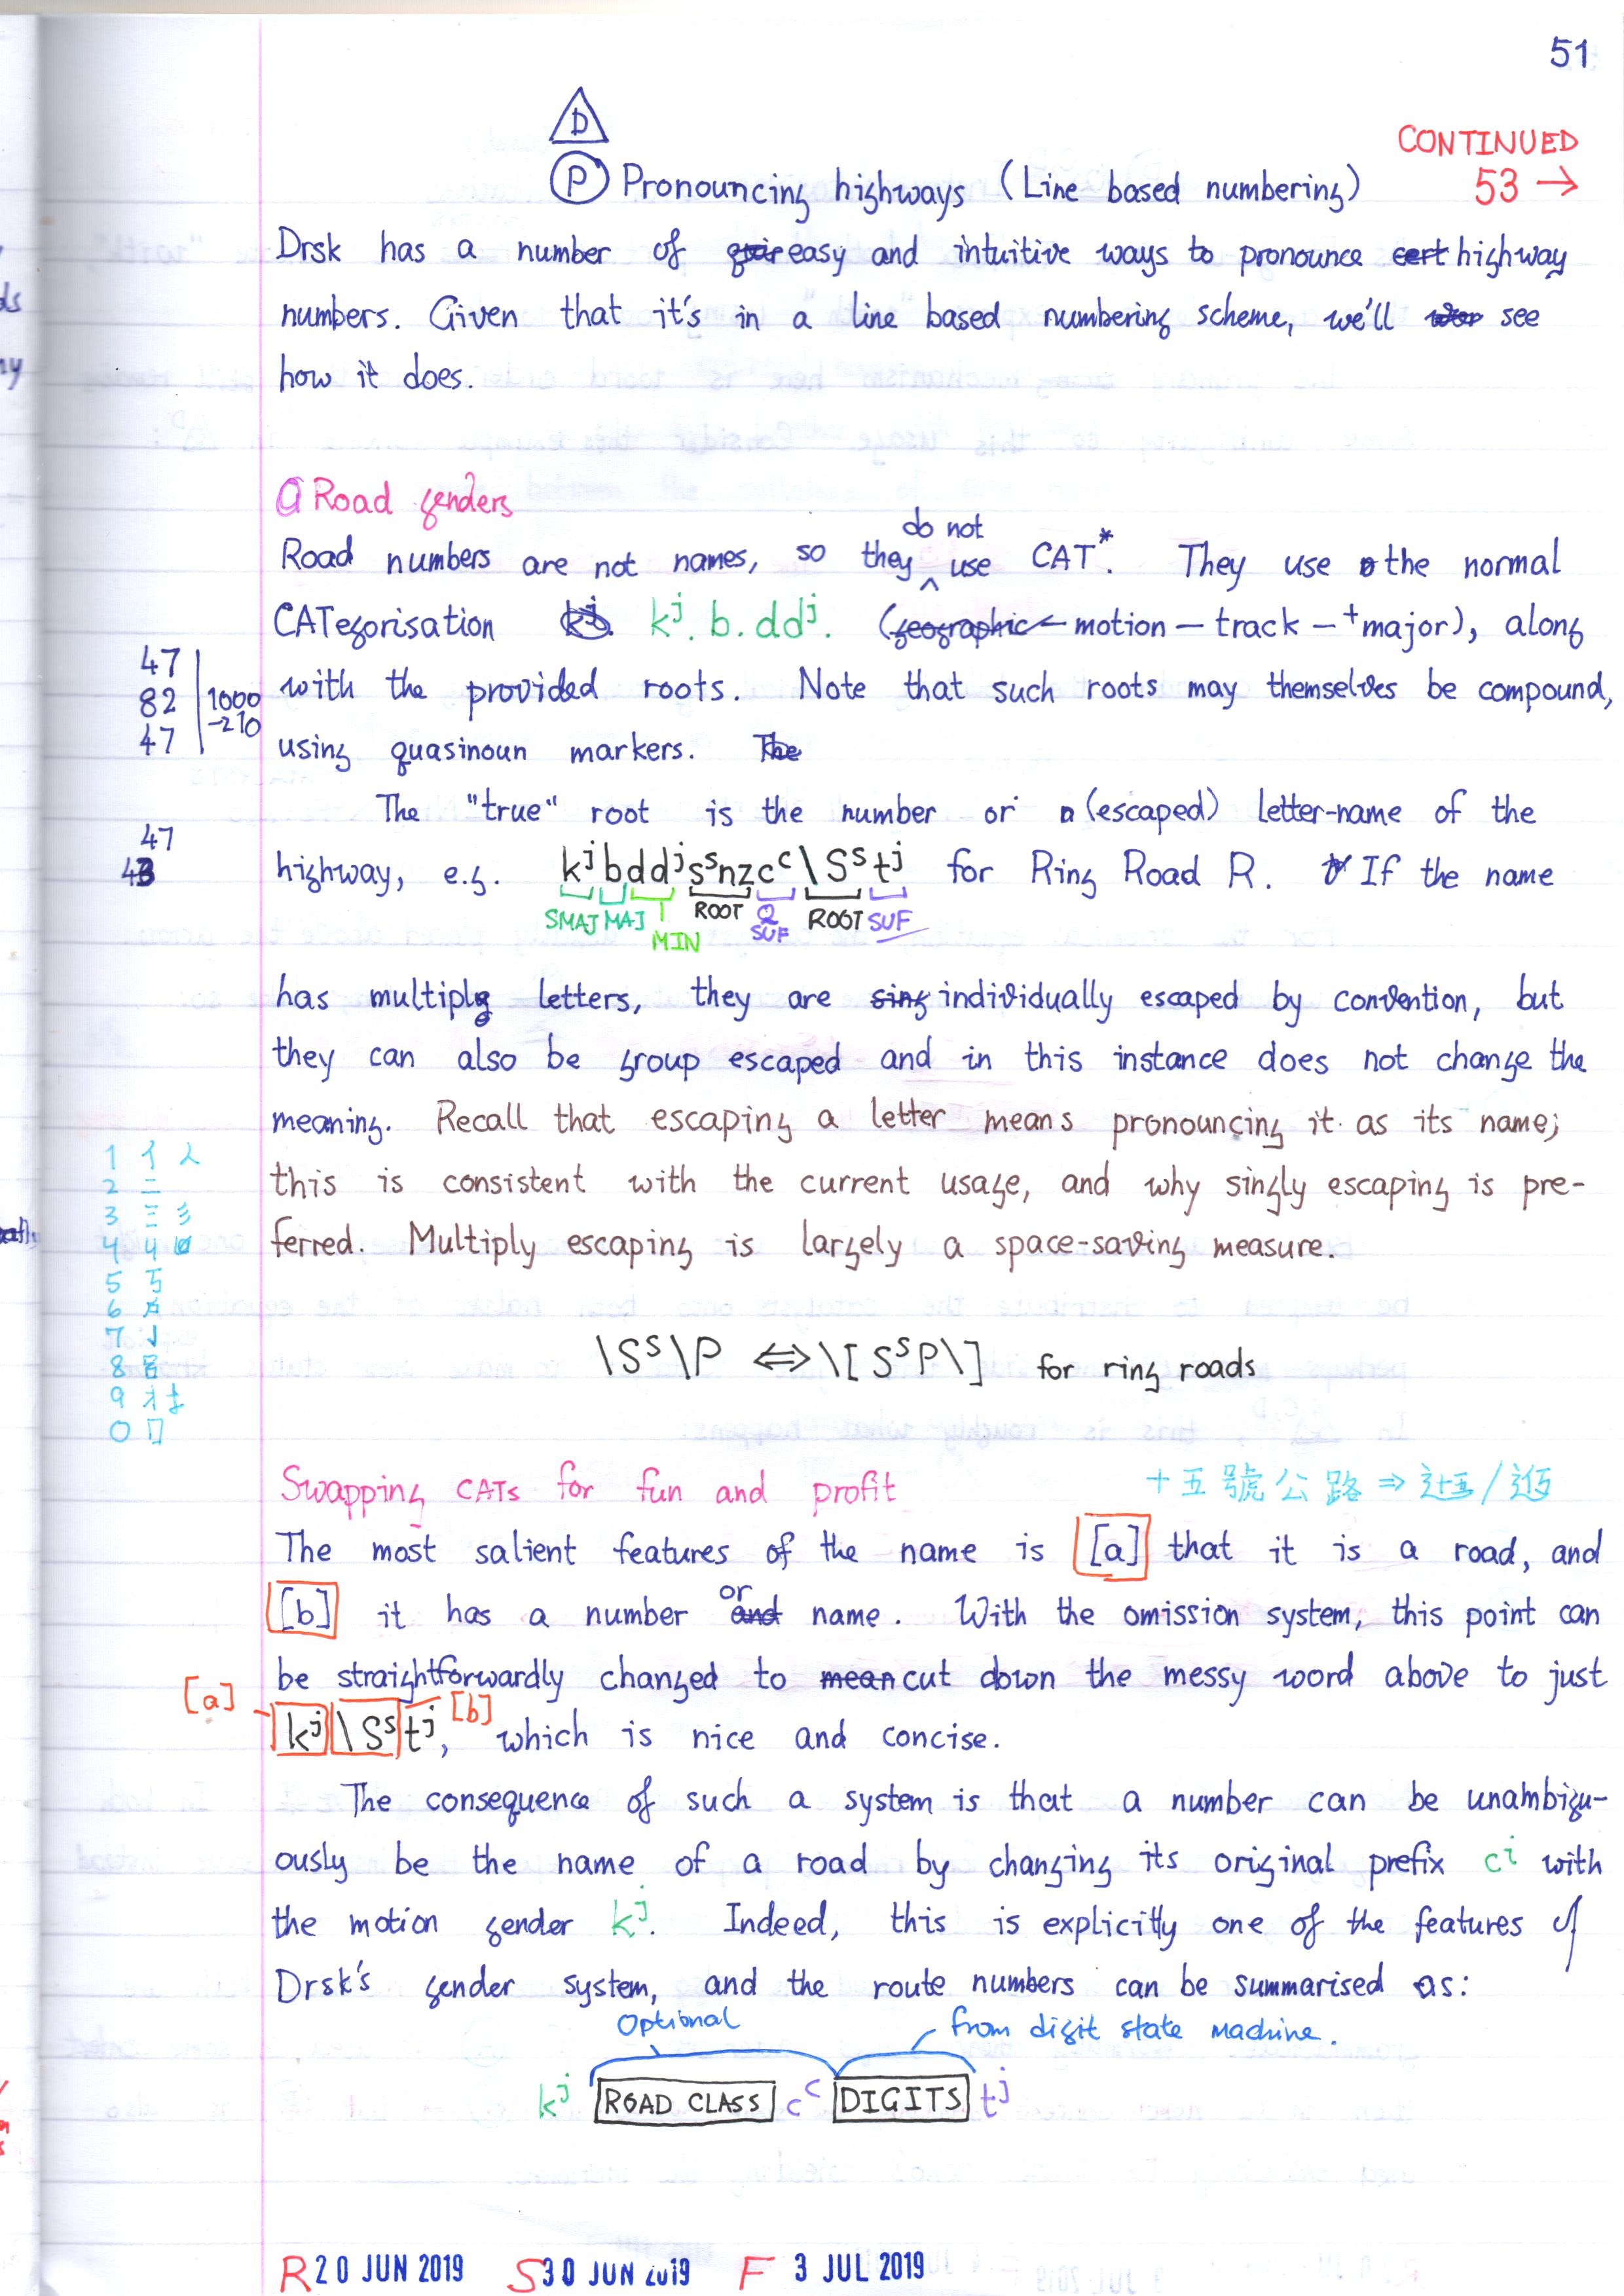 51
D
CONTINUED
53 →
P Pronouncing highways (Line based numbering)
Drsk has a number of easy and intuitive ways to pronounce cert highway
numbers. Given that it's in a line based numbering scheme, we'll see
how it does.
Road genders
do not
Road numbers are not names, so they ^ use CAT*. They use the normal
CATegorisation kʲ kʲ. b. ddʲ. (geographic motion – track – ⁺major), along
47
82
47
1000
→210
with the provided roots. Note that such roots may themselves be compound,
using quasinoun markers. The
The "true" root is the number or (escaped) letter-name of the
47
highway, e.g. kʲbddʲsˢnzcᶜ\Sˢtʲ for Ring Road R. If the name
SMAJ MAJ MIN ROOT Q SUF ROOT SUF
has multiple letters, they are sing individually escaped by convention, but
they can also be group escaped and in this instance does not change the
meaning. Recall that escaping a letter means pronouncing it as its name;
this is consistent with the current usage, and why singly escaping is pre-
ferred. Multiply escaping is largely a space-saving measure.
1
2 二
3 三
4
5
6
7
8
9
0
\Sˢ\P ⇔ \[SˢP\] for ring roads
Swapping CATs for fun and profit
十五號公路 ⇒
The most salient features of the name is [a] that it is a road, and
or
[b] it has a number and name. With the omission system, this point can
be straightforwardly changed to mean cut down the messy word above to just
[a] kʲ\Sˢtʲ, [b] which is nice and concise.
The consequence of such a system is that a number can be unambigu-
ously be the name of a road by changing its original prefix cⁱ with
the motion gender kʲ. Indeed, this is explicitly one of the features of
Drsk's gender system, and the route numbers can be summarised as:
Optional from digit state machine.
kʲ ROAD CLASS cᶜ DIGITS tʲ
R 20 JUN 2019 S 30 JUN 2019 F 3 JUL 2019